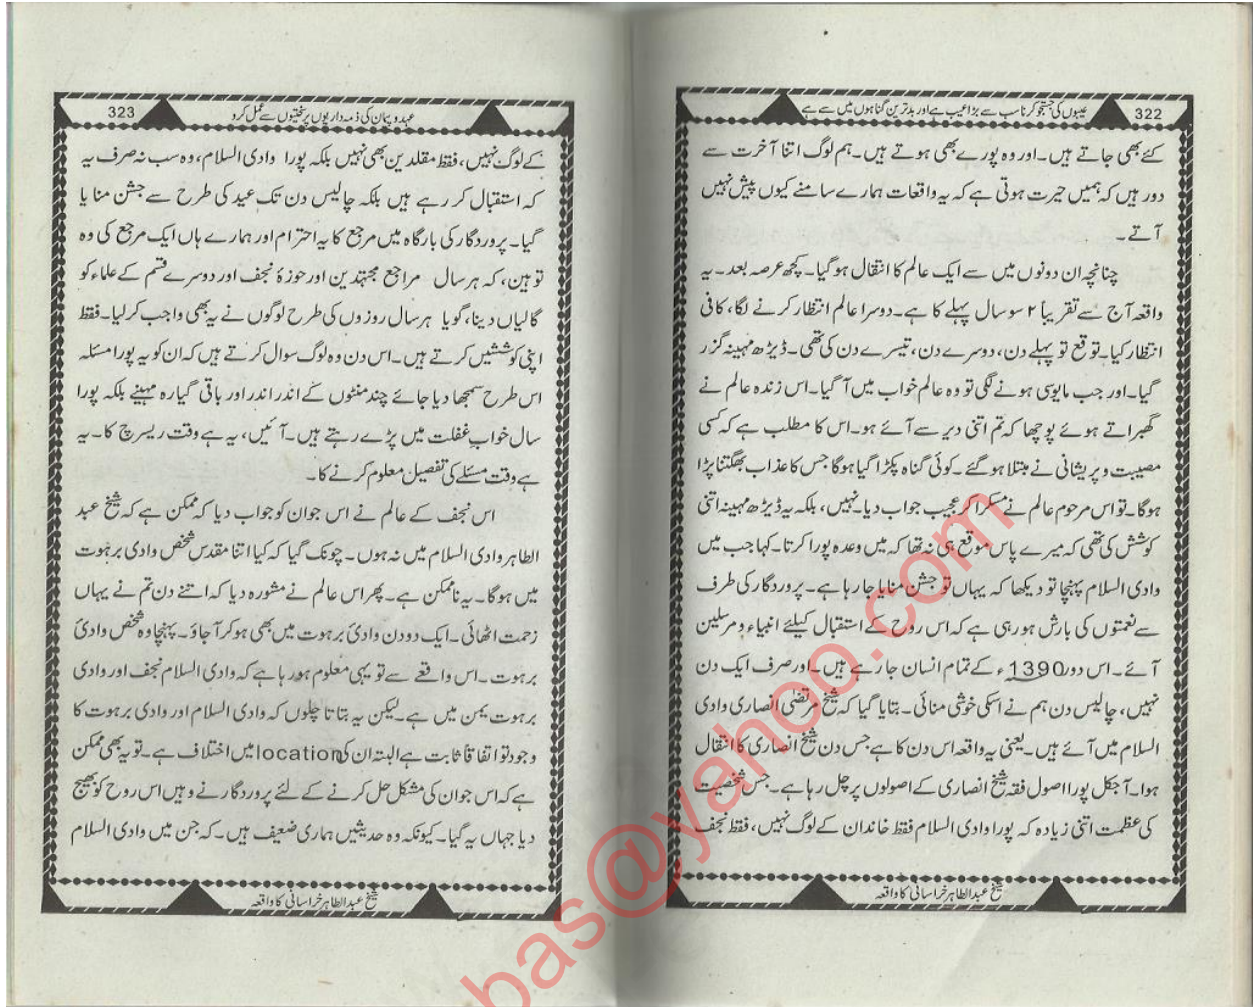 322
عیبوں کی جستجو کرنا سب سے بڑا عیب ہے اور بدترین گناہوں میں سے ہے
کئے بھی جاتے ہیں۔ اور وہ پورے بھی ہوتے ہیں۔ ہم لوگ اتنا آخرت سے
دور ہیں کہ ہمیں حیرت ہوتی ہے کہ یہ واقعات ہمارے سامنے کیوں پیش نہیں
آتے۔
چنانچہ ان دونوں میں سے ایک عالم کا انتقال ہو گیا۔ کچھ عرصہ بعد۔ یہ
واقعہ آج سے تقریباً ۲ سو سال پہلے کا ہے۔ دوسرا عالم انتظار کرنے لگا، کافی
انتظار کیا۔ توقع تو پہلے دن، دوسرے دن، تیسرے دن کی تھی۔ ڈیڑھ مہینہ گزر
گیا۔ اور جب مایوسی ہونے لگی تو وہ عالم خواب میں آ گیا۔ اس زندہ عالم نے
گھبراتے ہوئے پوچھا کہ تم اتنی دیر سے آئے ہو۔ اس کا مطلب ہے کہ کسی
مصیبت و پریشانی نے مبتلا ہو گئے۔ کوئی گناہ پکڑا گیا ہوگا جس کا عذاب بھگتنا پڑا
ہوگا۔ تو اس مرحوم عالم نے مسکرا کر عجیب جواب دیا۔ نہیں، بلکہ یہ ڈیڑھ مہینہ اتنی
کوشش کی تھی کہ میرے پاس موقع ہی نہ تھا کہ میں وعدہ پورا کرتا۔ کہا جب میں
وادی السلام پہنچا تو دیکھا کہ یہاں تو جشن منایا جا رہا ہے۔ پروردگار کی طرف
سے نعمتوں کی بارش ہو رہی ہے کہ اس روح کے استقبال کیلئے انبیاء و مرسلین
آئے۔ اس دور 1390ء کے تمام انسان جا رہے ہیں۔ اور صرف ایک دن
نہیں، چالیس دن ہم نے اسکی خوشی منائی۔ بتایا گیا کہ شیخ مرتضیٰ انصاری وادی
السلام میں آئے ہیں۔ یعنی یہ واقعہ اس دن کا ہے جس دن شیخ انصاری کا انتقال
ہوا۔ آجکل پورا اصول فقہ شیخ انصاری کے اصولوں پر چل رہا ہے۔ جس شخصیت
کی عظمت اتنی زیادہ کہ پورا وادی السلام فقط خاندان کے لوگ نہیں، فقط نجف
شیخ عبدالطاہر خراسانی کا واقعہ
323
عہد و پیمان کی ذمہ داریوں پر سختیوں سے عمل کرو
کے لوگ نہیں، فقط مقلدین بھی نہیں بلکہ پورا وادی السلام، وہ سب نہ صرف یہ
کہ استقبال کر رہے ہیں بلکہ چالیس دن تک عید کی طرح سے جشن منا یا
گیا۔ پروردگار کی بارگاہ میں مرجع کا یہ احترام اور ہمارے ہاں ایک مرجع کی وہ
توہین، کہ ہر سال مراجع مجتہدین اور حوزۂ نجف اور دوسرے قسم کے علماء کو
گالیاں دینا، گویا ہر سال روزوں کی طرح لوگوں نے یہ بھی واجب کر لیا۔ فقط
اپنی کوششیں کرتے ہیں۔ اس دن وہ لوگ سوال کرتے ہیں کہ ان کو یہ پورا مسئلہ
اس طرح سمجھا دیا جائے چند منٹوں کے اندر اندر اور باقی گیارہ مہینے بلکہ پورا
سال خواب غفلت میں پڑے رہتے ہیں۔ آئیں، یہ ہے وقت ریسرچ کا۔ یہ
ہے وقت مسئلے کی تفصیل معلوم کرنے کا۔
اس نجف کے عالم نے اس جوان کو جواب دیا کہ ممکن ہے کہ شیخ عبد
الطاہر وادی السلام میں نہ ہوں۔ چونک گیا کہ کیا اتنا مقدس شخص وادی برہوت
میں ہوگا۔ یہ ناممکن ہے۔ پھر اس عالم نے مشورہ دیا کہ اتنے دن تم نے یہاں
زحمت اٹھائی۔ ایک دو دن وادئ برہوت میں بھی ہو کر آجاؤ۔ پہنچا وہ شخص وادئ
برہوت۔ اس واقعے سے تو یہی معلوم ہو رہا ہے کہ وادی السلام نجف اور وادی
برہوت یمن میں ہے۔ لیکن یہ بتاتا چلوں کہ وادی السلام اور وادی برہوت کا
وجود تو اتفاقاً ثابت ہے البتہ ان کی location میں اختلاف ہے۔ تو یہ بھی ممکن
ہے کہ اس جوان کی مشکل حل کرنے کے لئے پروردگار نے وہیں اس روح کو بھیج
دیا جہاں یہ گیا۔ کیونکہ وہ حدیثیں ہماری ضعیف ہیں۔ کہ جن میں وادی السلام
شیخ عبدالطاہر خراسانی کا واقعہ
bas@yahoo.com